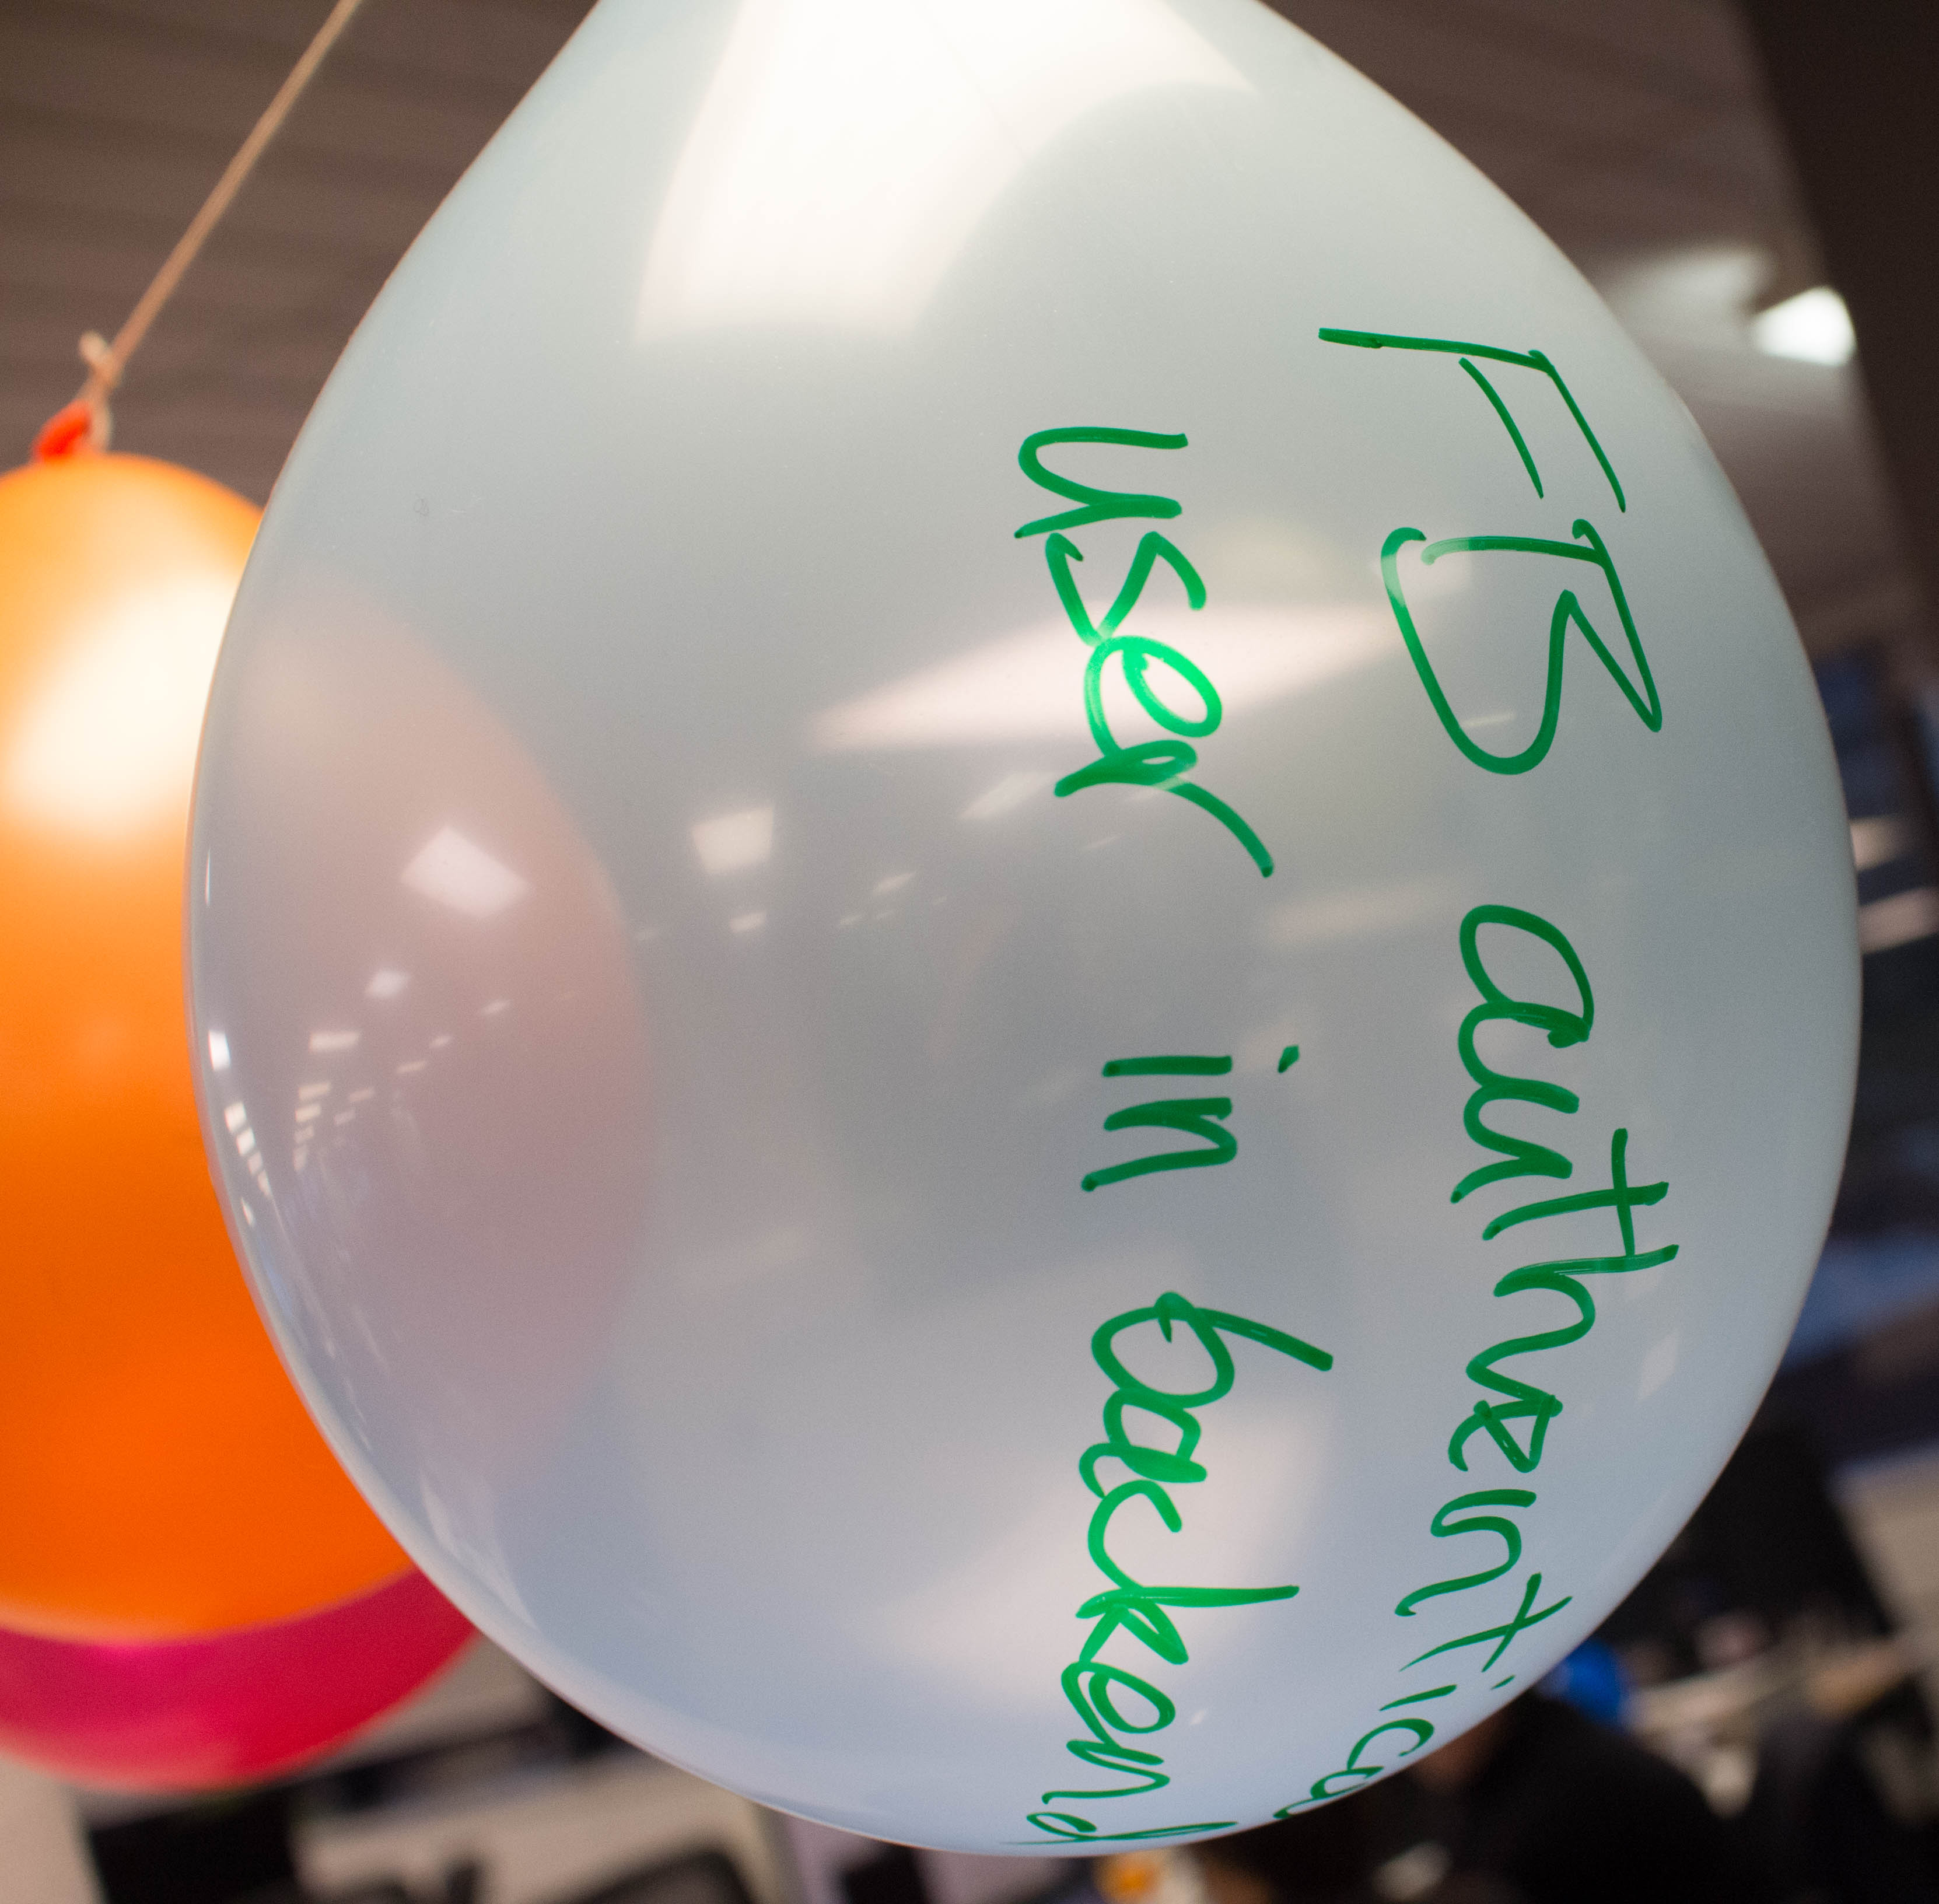 FB authentica
user in backend